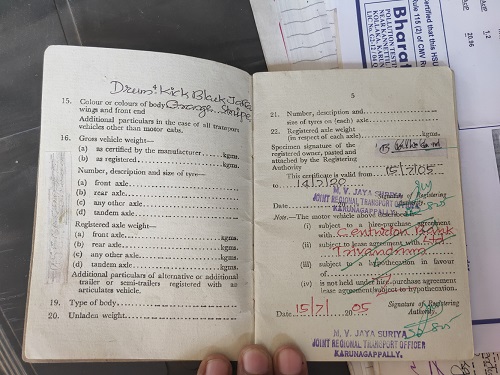 Drum & Kick Black Jade
15. Colour or colours of body Orange Stripe
wings and front end
Additional particulars in the case of all transport
vehicles other than motor cabs.
16. Gross vehicle weight—
(a) as certified by the manufacturer ...... kgms.
(b) as registered ...... kgms.
Number, description and size of tyre—
(a) front axle
(b) rear axle
(c) any other axle
(d) tandem axle
Registered axle weight—
(a) front axle ...... kgms.
(b) rear axle ...... kgms.
(c) any other axle ...... kgms.
(d) tandem axle ...... kgms.
Additional particulars of alternative or additional
trailer or semi-trailers registered with an
articulates vehicle.
19. Type of body
20. Unladen weight
5
21. Number, description and
size of tyres on (each) axle
22. Registered axle weight
(in respect of each axle) ...... kgms.
Specimen signature of the
registered owner, pasted and
attached by the Registering
Authority
This certificate is valid from 15/7/05
to 14/7/20
M. V. JAYA SURIYA
JOINT REGIONAL TRANSPORT OFFICER
KARUNAGAPPALLY
Signature of Registering
Note.—The motor vehicle above
(i) subject to a hire-purchase agreement
with Centurion Bank
(ii) subject to lease agreement with Ltd
Trivandrum
(iii) subject to a hypothecation in favour
of
(iv) is not held under hire-purchase agreement
lease agreement/subject to hypothecation.
Date 15/7/ 2005
Signature of Registering
Authority.
M. V. JAYA SURIYA
JOINT REGIONAL TRANSPORT OFFICER
KARUNAGAPPALLY.
Bharat
certified that this HSU
Rule 115 (2) of CMV Ru
20.96
1.2